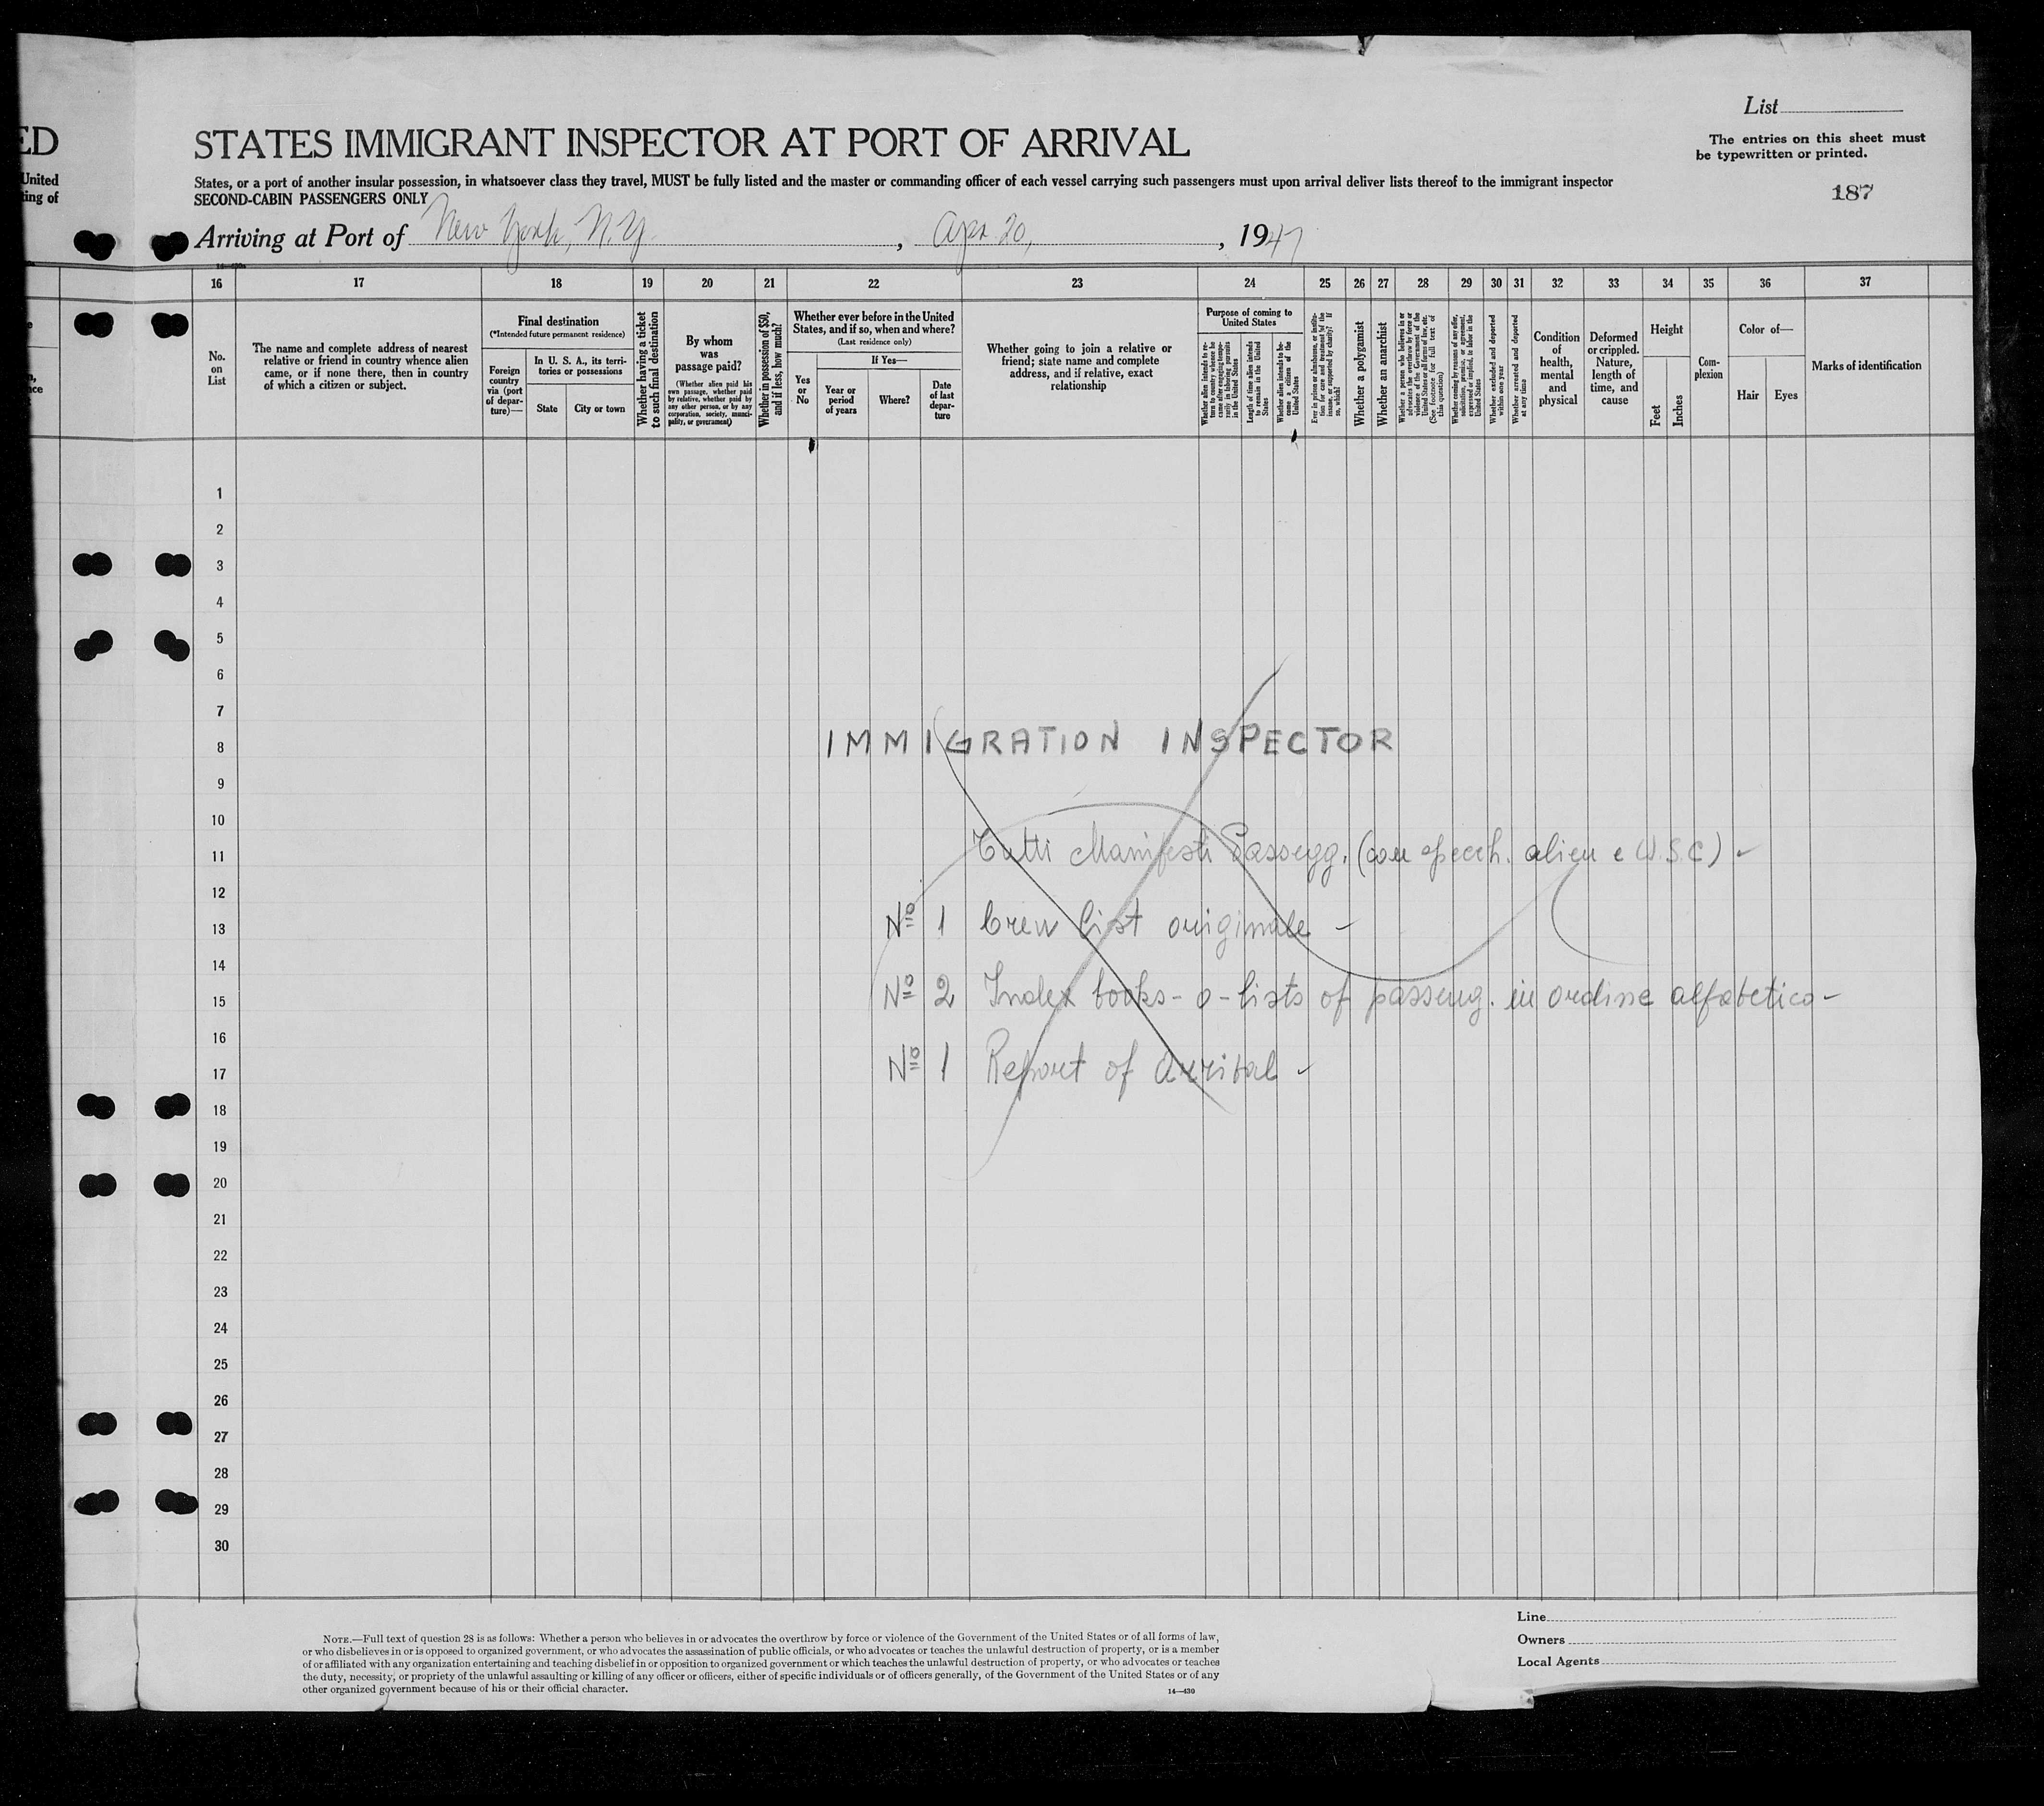 List
ED
STATES IMMIGRANT INSPECTOR AT PORT OF ARRIVAL
The entries on this sheet must
be typewritten or printed.
United
ing of
States, or a port of another insular possession, in whatsoever class they travel, MUST be fully listed and the master or commanding officer of each vessel carrying such passengers must upon arrival deliver lists thereof to the immigrant inspector
SECOND-CABIN PASSENGERS ONLY
187
Arriving at Port of New York, N.Y. , Apr. 20, , 1947
16 17 18 19 20 21 22 23 24 25 26 27 28 29 30 31 32 33 34 35 36 37
No.
on
List
The name and complete address of nearest
relative or friend in country whence alien
came, or if none there, then in country
of which a citizen or subject.
Final destination
(*Intended future permanent residence)
Foreign
country
via (port
of depar-
ture)—
In U. S. A., its terri-
tories or possessions
State
City or town
Whether having a ticket
to such final destination
By whom
was
passage paid?
(Whether alien paid his
own passage, whether paid
by relative, whether paid by
any other person, or by any
corporation, society, munici-
pality, or government)
Whether in possession of $50,
and if less, how much?
Whether ever before in the United
States, and if so, when and where?
(Last residence only)
Yes
or
No
If Yes—
Year or
period
of years
Where?
Date
of last
depar-
ture
Whether going to join a relative or
friend; state name and complete
address, and if relative, exact
relationship
Purpose of coming to
United States
Whether alien intends to re-
turn to country whence he
came after engaging tempo-
rarily in laboring pursuits
in the United States
Length of time alien intends
to remain in the United
States
Whether alien intends to be-
come a citizen of the
United States
Ever in prison or almshouse, or institu-
tion for care and treatment of the
insane, or supported by charity? If
so, which?
Whether a polygamist
Whether an anarchist
Whether a person who believes in or
advocates the overthrow by force or
violence of the Government of the
United States or all forms of law, etc.
(See footnote for full text of
this question)
Whether coming by reasons of any offer,
solicitation, promise, or agreement,
expressed or implied, to labor in the
United States
Whether excluded and deported
within one year
Whether arrested and deported
at any time
Condition
of
health,
mental
and
physical
Deformed
or crippled.
Nature,
length of
time, and
cause
Height
Feet
Inches
Com-
plexion
Color of—
Hair
Eyes
Marks of identification
1
2
3
4
5
6
7
IMMIGRATION INSPECTOR
8
9
10
Tutti Manifesti Passegg. (con specch. alien e U.S.C)
11
12
Nº 1 Crew List originale -
13
14
Nº 2 Index books - o - lists of passeng. in ordine alfabetico -
15
16
Nº 1 Report of Arrival
17
18
19
20
21
22
23
24
25
26
27
28
29
30
NOTE.—Full text of question 28 is as follows: Whether a person who believes in or advocates the overthrow by force or violence of the Government of the United States or of all forms of law,
or who disbelieves in or is opposed to organized government, or who advocates the assassination of public officials, or who advocates or teaches the unlawful destruction of property, or is a member
of or affiliated with any organization entertaining and teaching disbelief in or opposition to organized government or which teaches the unlawful destruction of property, or who advocates or teaches
the duty, necessity, or propriety of the unlawful assaulting or killing of any officer or officers, either of specific individuals or of officers generally, of the Government of the United States or of any
other organized government because of his or their official character.
14—430
Line
Owners
Local Agents